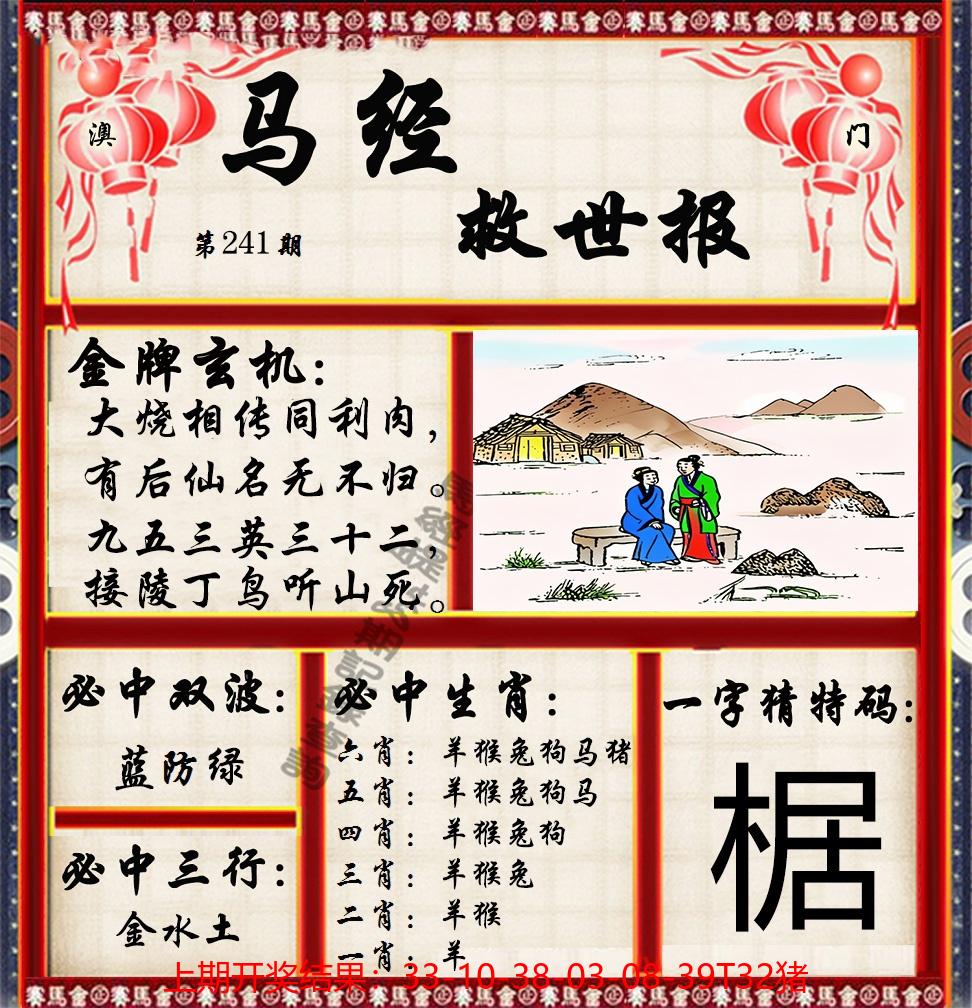 澳
门
马经
救世报
第241期
金牌玄机：
大烧相传同利肉，
有后仙名无不归。
九五三英三十二，
接陵丁鸟听山死。
必中双波：
蓝防绿
必中三行：
金水土
必中生肖：
六肖：羊猴兔狗马猪
五肖：羊猴兔狗马
四肖：羊猴兔狗
三肖：羊猴兔
二肖：羊猴
一肖：羊
一字猜特码：
椐
上期开奖结果：33-10-38-03-08-39T32猪